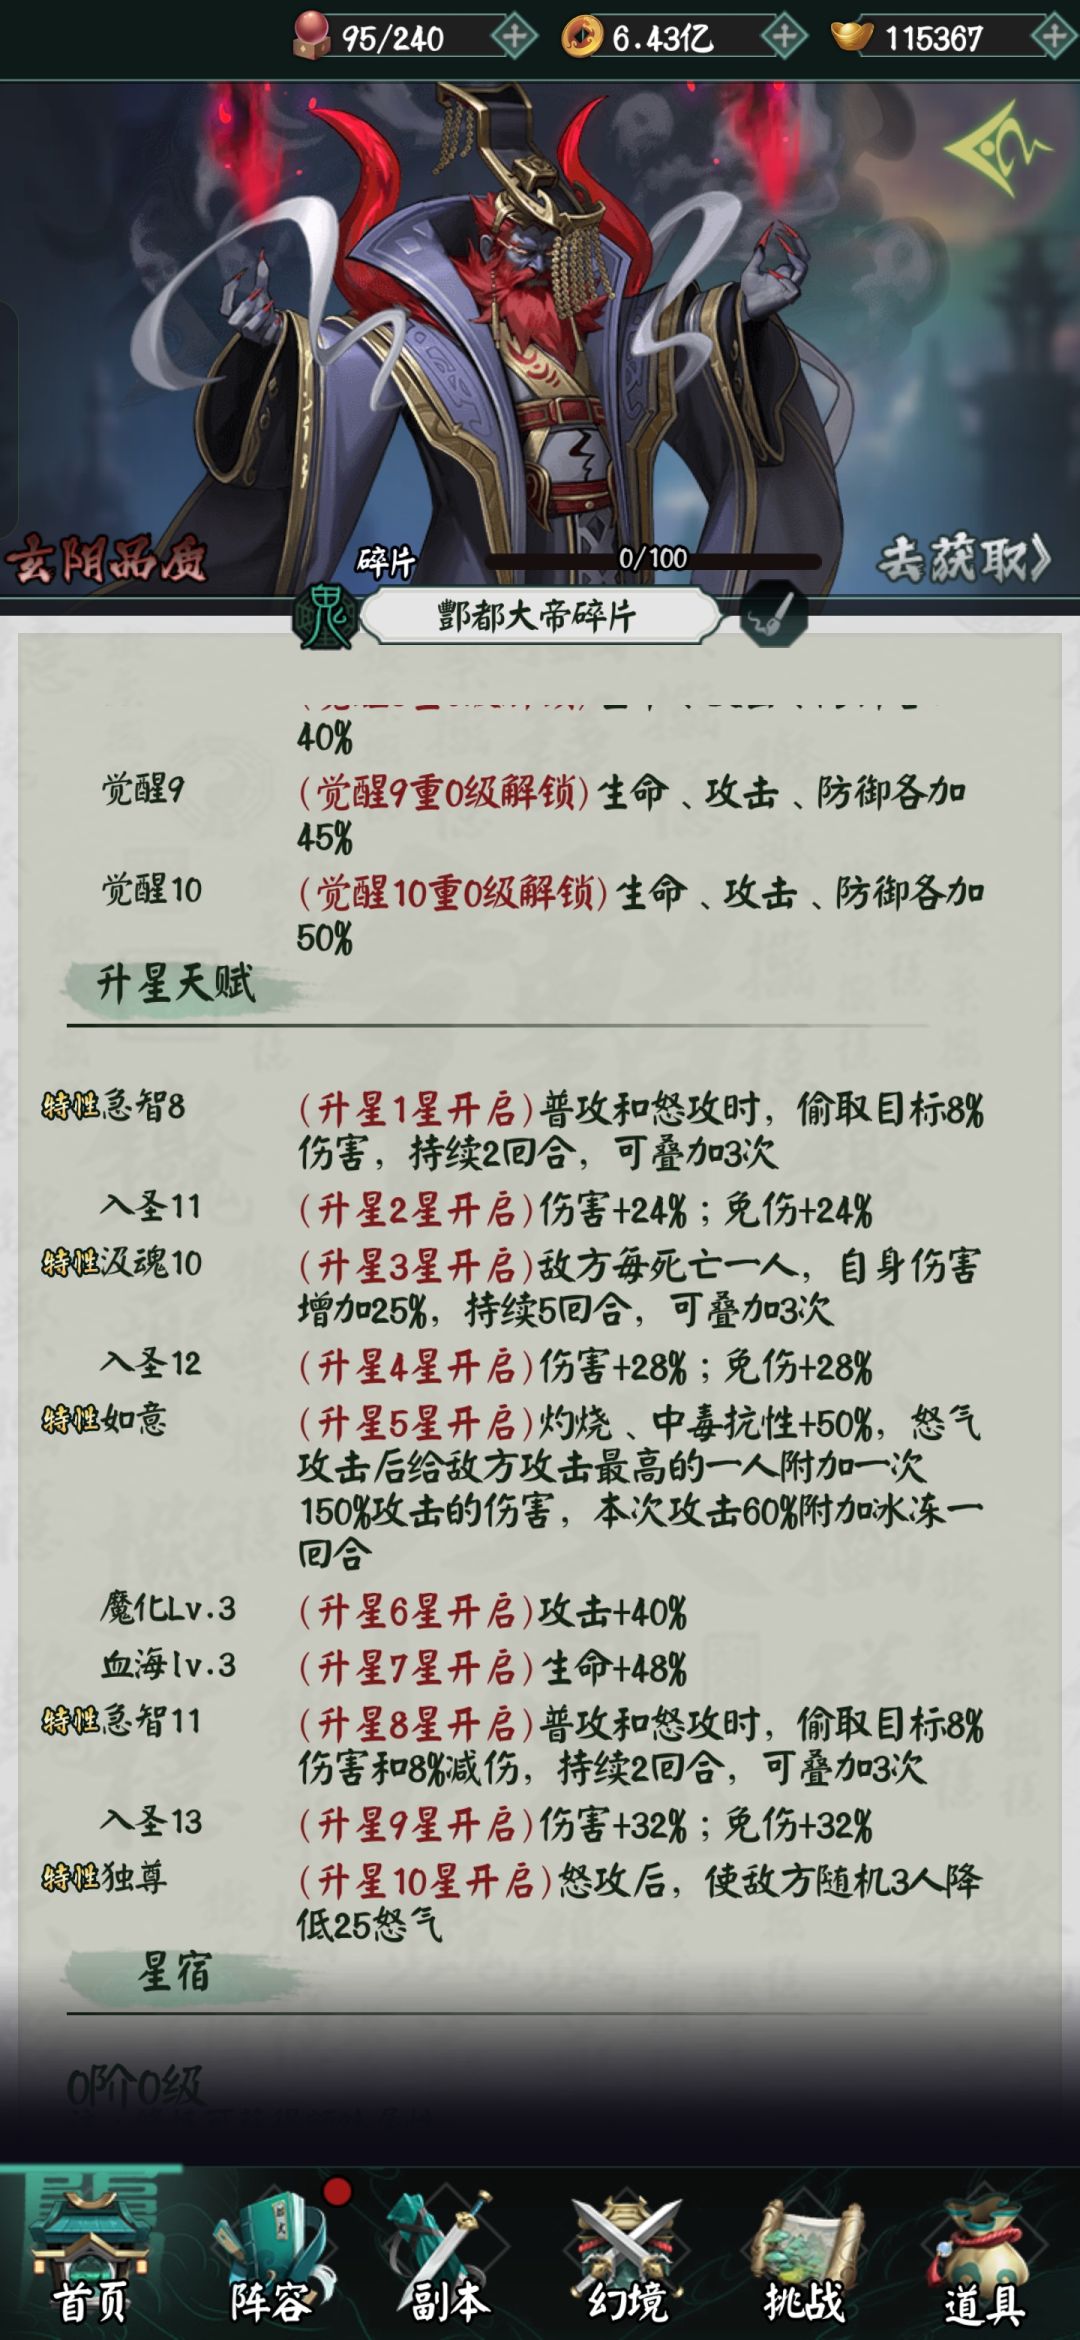 95/240
6.43亿
115367
玄阴品质
碎片
0/100
去获取》
鬼
酆都大帝碎片
40%
觉醒9
(觉醒9重0级解锁)生命、攻击、防御各加
45%
觉醒10
(觉醒10重0级解锁)生命、攻击、防御各加
50%
升星天赋
特性急智8
(升星1星开启)普攻和怒攻时，偷取目标8%
伤害，持续2回合，可叠加3次
入圣11
(升星2星开启)伤害+24%；免伤+24%
特性汲魂10
(升星3星开启)敌方每死亡一人，自身伤害
增加25%，持续5回合，可叠加3次
入圣12
(升星4星开启)伤害+28%；免伤+28%
特性如意
(升星5星开启)灼烧、中毒抗性+50%，怒气
攻击后给敌方攻击最高的一人附加一次
150%攻击的伤害，本次攻击60%附加冰冻一
回合
魔化Lv.3
(升星6星开启)攻击+40%
血海lv.3
(升星7星开启)生命+48%
特性急智11
(升星8星开启)普攻和怒攻时，偷取目标8%
伤害和8%减伤，持续2回合，可叠加3次
入圣13
(升星9星开启)伤害+32%；免伤+32%
特性独尊
(升星10星开启)怒攻后，使敌方随机3人降
低25怒气
星宿
0阶0级
首页
阵容
副本
幻境
挑战
道具